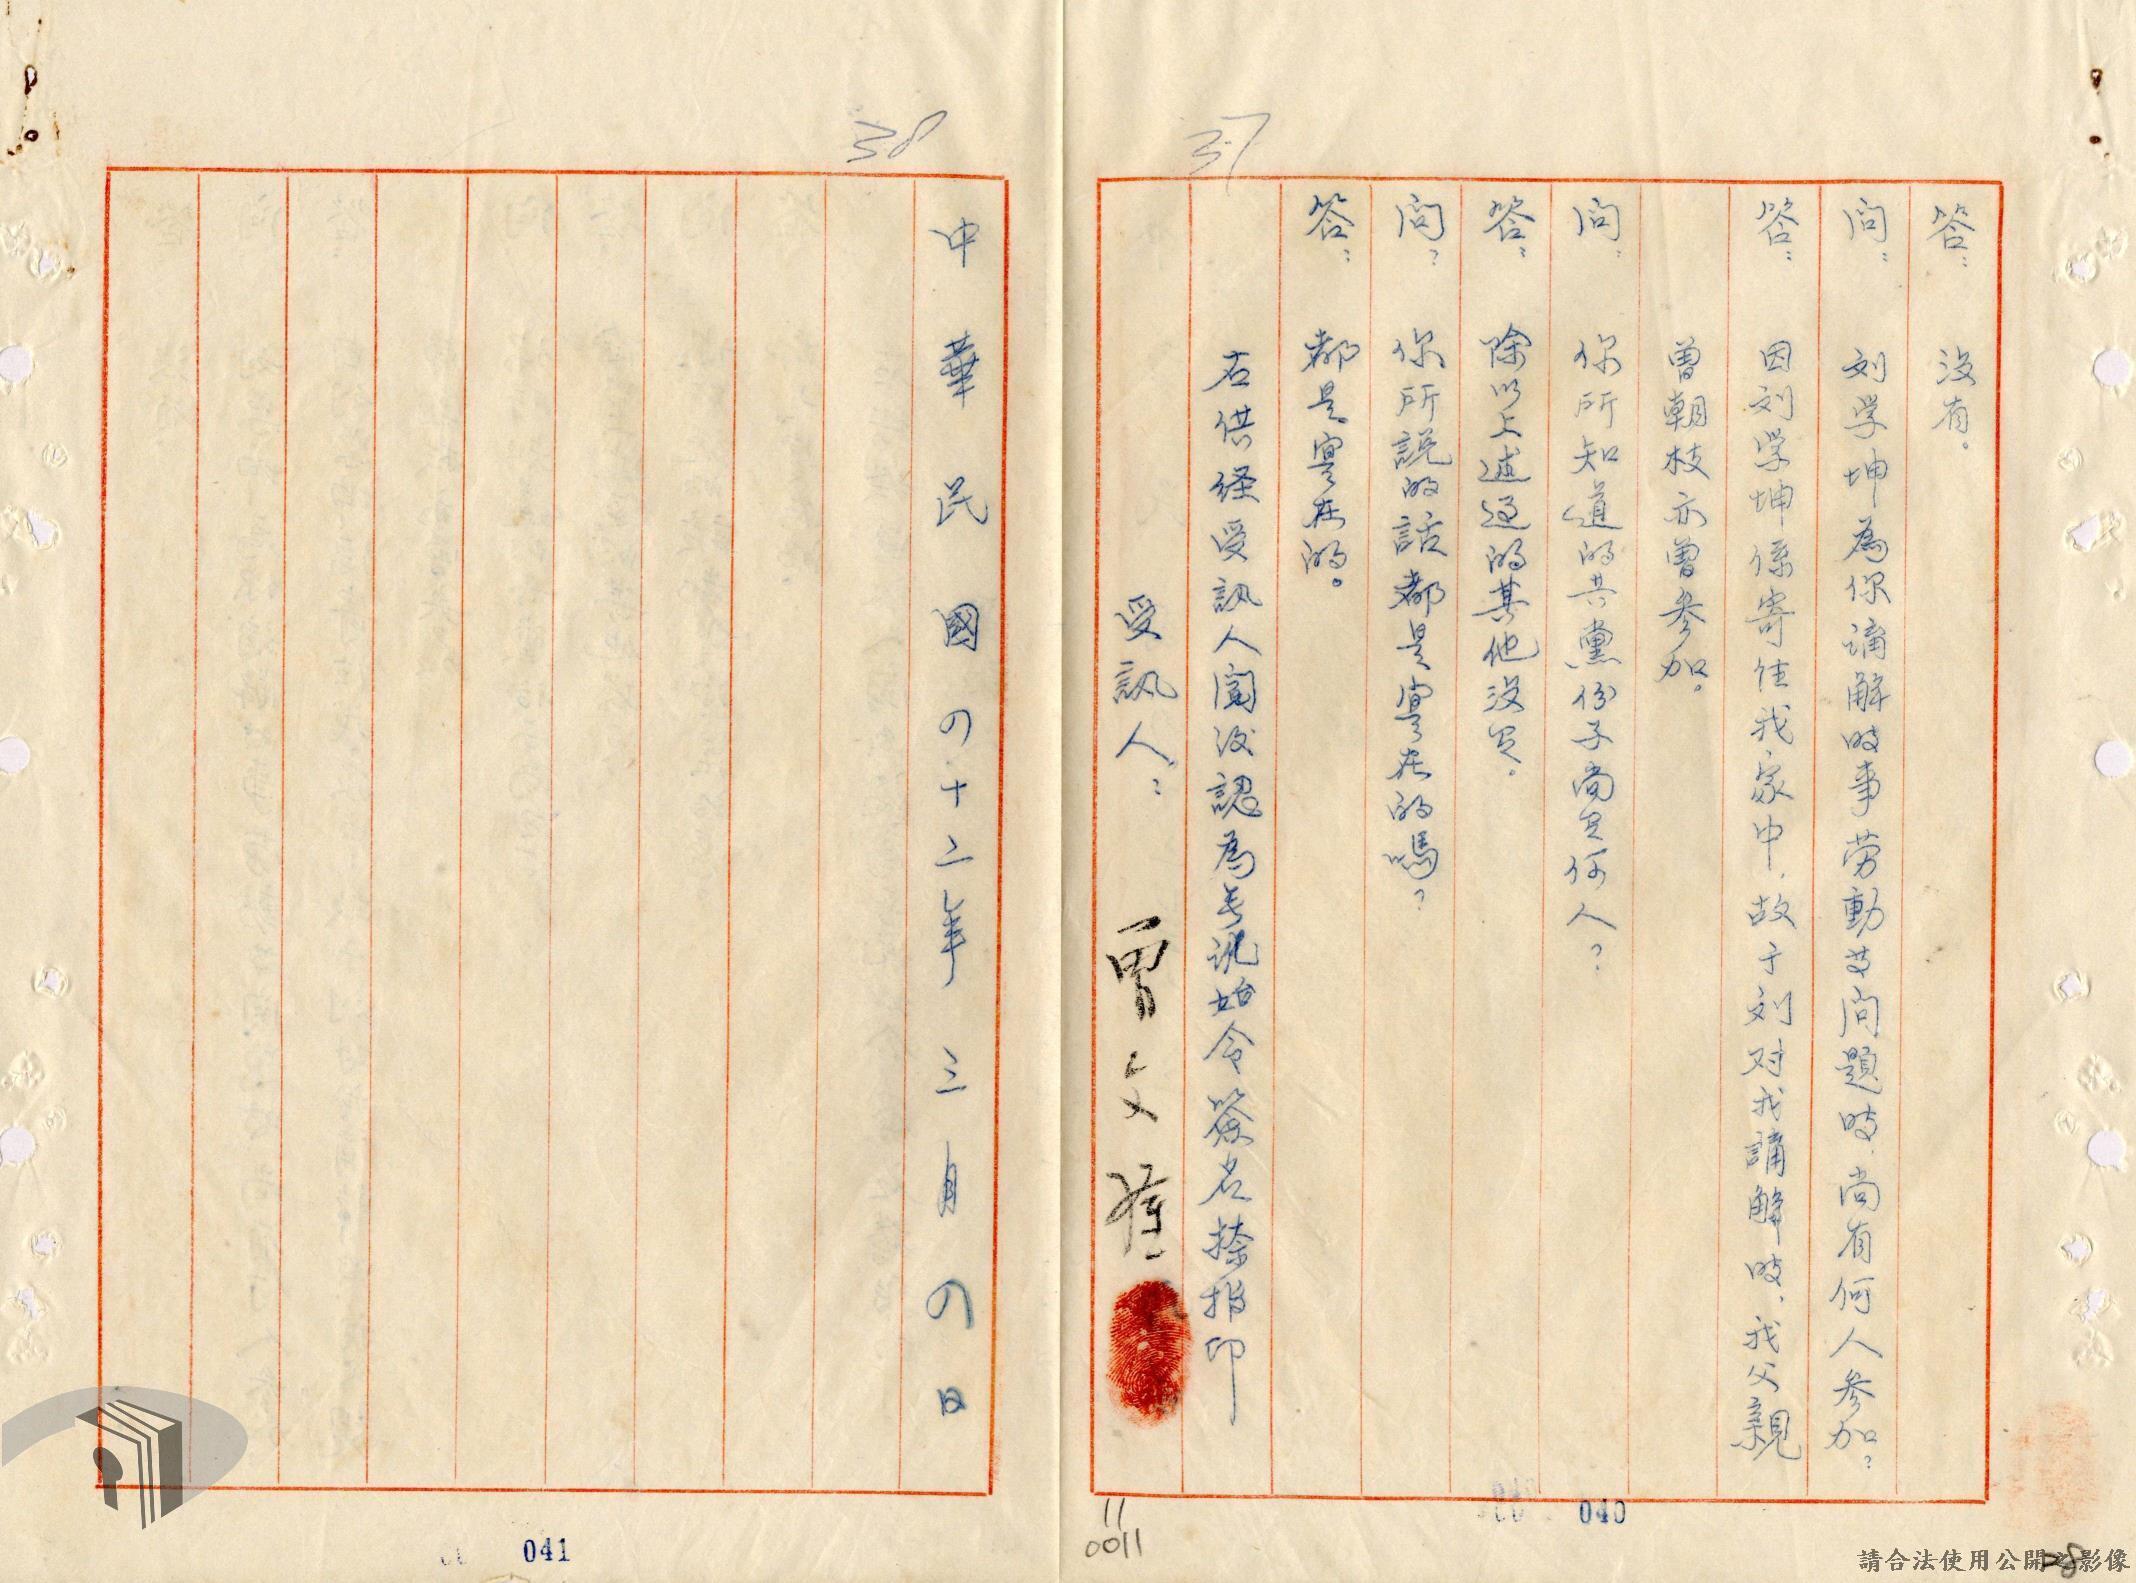 37
答： 沒有。
問： 刘学坤為你講解時事劳動等问題時，尚有何人參加？
答： 因刘学坤係寄住我家中，故于刘对我講解時，我父親
曾朝枝亦曾參加。
问： 你所知道的共黨份子尚有何人？
答： 除以上述过的其他沒有。
问： 你所說的話都是實在的嗎？
答： 都是實在的。
右供经受訊人閱後認為無訛始令簽名捺指印
受訊人： 曾文
040
11
0011
28
38
中華民國四十二年三月四日
041
請合法使用公開之影像